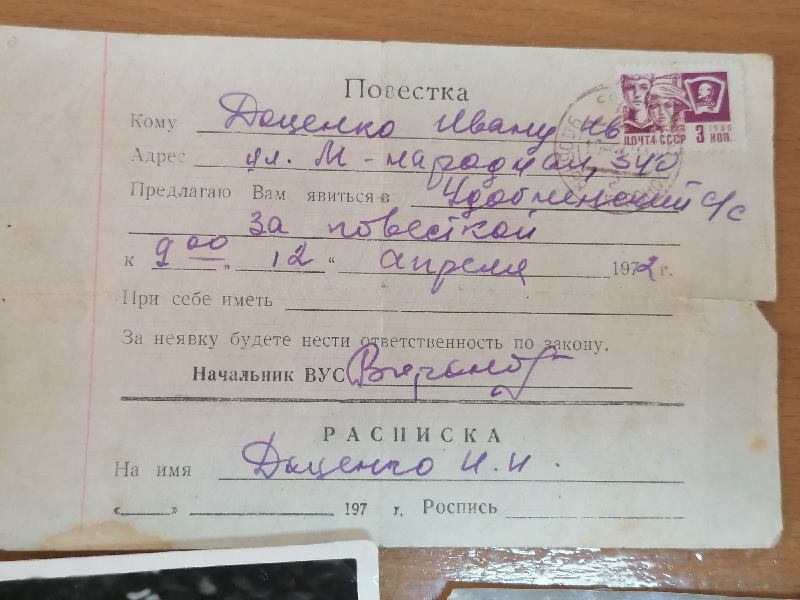 Повестка
Кому Доценко Ивану Ив
Адрес ул. М-народная, 540
Предлагаю Вам явиться в Удобненский с/с
За повесткой
к 9 00 „ 12 “ апреля 1972 г.
При себе иметь
За неявку будете нести ответственность по закону.
Начальник ВУС
РАСПИСКА
На имя Доценко И. И.
« » 197 г. Роспись
ПОЧТА СССР 3 КОП. 1966